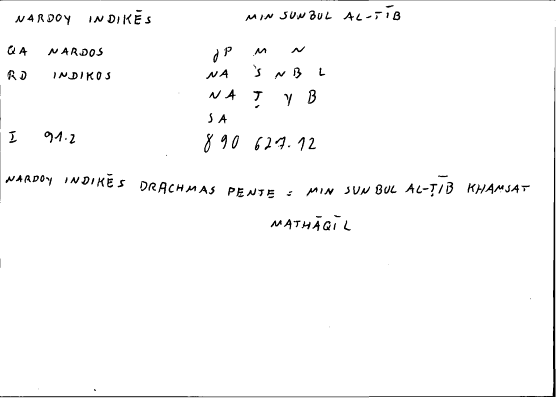 NARDOY INDIKĒS MIN SUNBUL AL-ṬĪB
QA NARDOS JP M N
RD INDIKOS NA S N B L
NA Ṭ Y B
SA
I 91.2 890 627.12
NARDOY INDIKĒS DRACHMAS PENTE = MIN SUNBUL AL-ṬĪB KHAMSAT
MATHĀQĪL